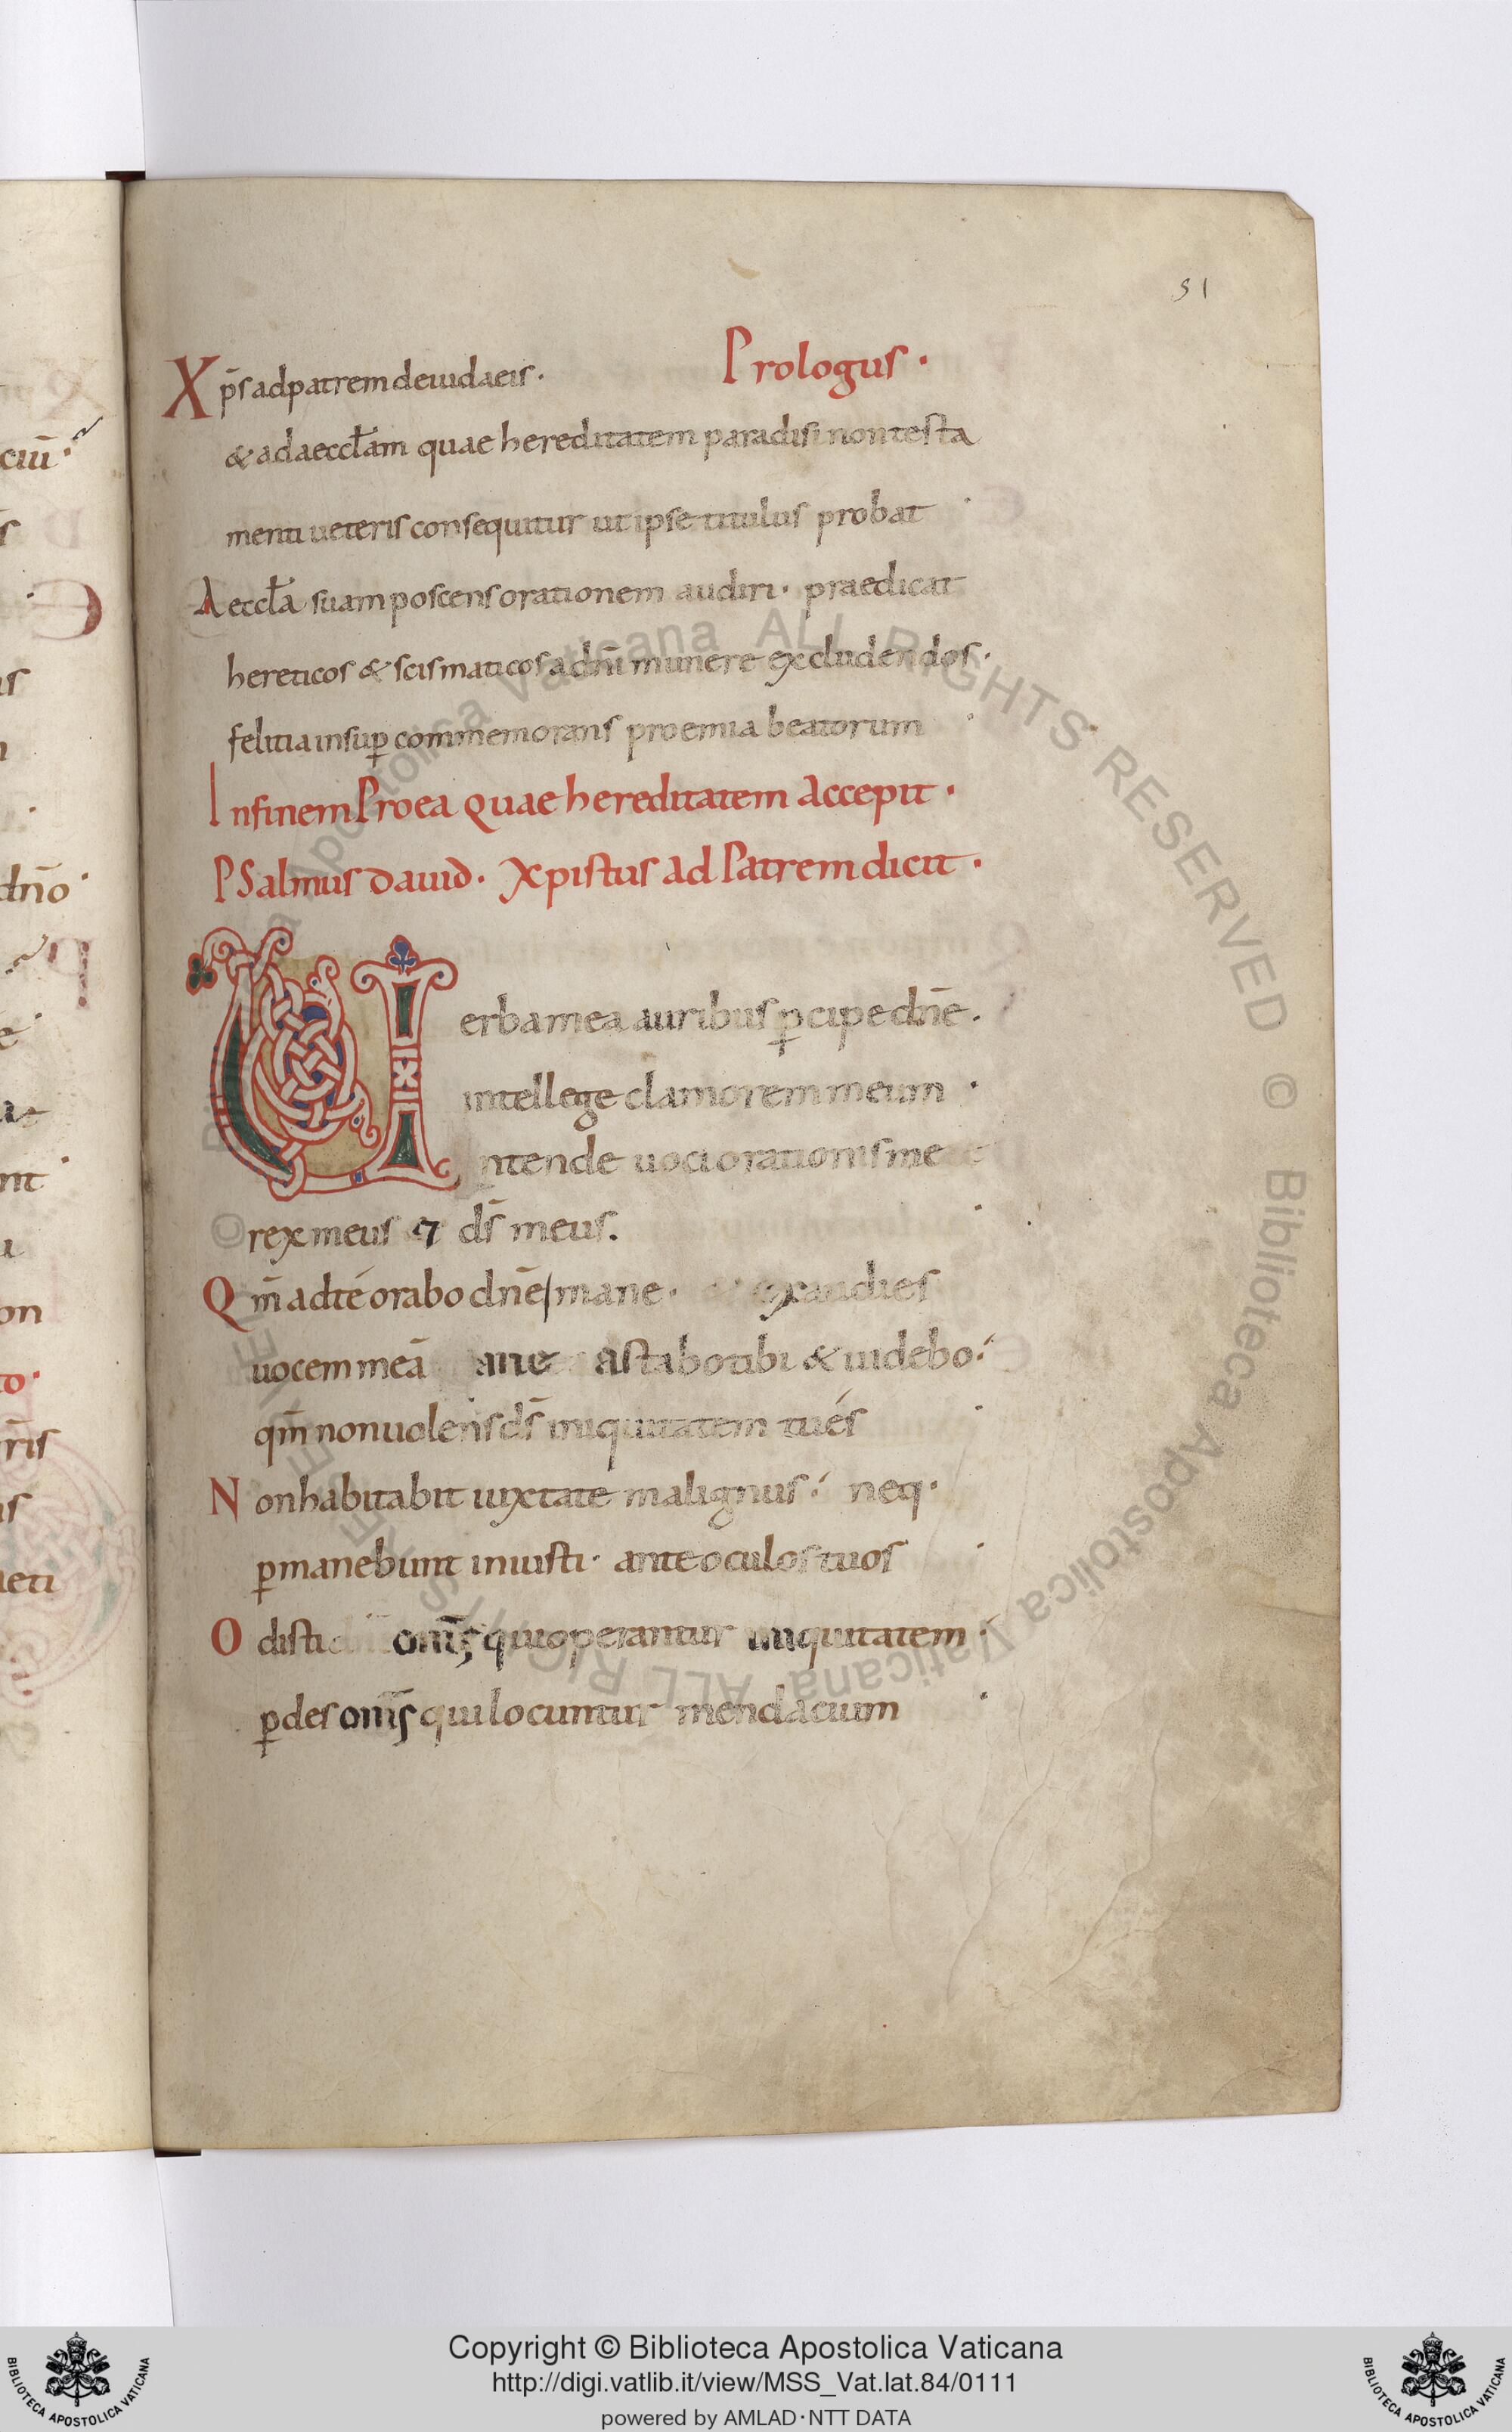 51
Prologus ·
Xp̄s ad patrem de iudaeis ·
& ad aeccl̄am quae hereditatem paradisi non testa
menti ueteris consequitur ut ipse titulus probat ·
Aeccl̄a suam poscens orationem audiri · praedicat
hereticos & scismaticos a dn̄i munere excludendos ·
felitia insuꝑ commemorans proemia beatorum ·
In finem Pro ea quae hereditatem accepit ·
PSalmus dauid · Xpistus ad Patrem dicit ·
Uerba mea auribus ꝑcipe dn̄e ·
intellege clamorem meum ·
Intende uoci orationis me
rex meus ⁊ ds̄ meus.
Qm̄ ad té orabo dn̄e mane · exaudies
uocem meā ane astabo tibi & uidebo ·
qm̄ non uolens ds̄ iniquitatem tu és ·
Non habitabit iuxta te malignus · neq ·
ꝑmanebunt iniusti · ante oculos tuos ·
Odisti om̄s qui operantur iniquitatem ·
ꝑdes om̄s qui locuntur mendacium ·
ciū ·
dn̄o ·
Copyright © Biblioteca Apostolica Vaticana
http://digi.vatlib.it/view/MSS_Vat.lat.84/0111
powered by AMLAD·NTT DATA
BIBLIOTECA APOSTOLICA VATICANA
BIBLIOTECA APOSTOLICA VATICANA
© Biblioteca Apostolica Vaticana ALL RIGHTS RESERVED © Biblioteca Apostolica Vaticana ALL RIGHTS RESERVED